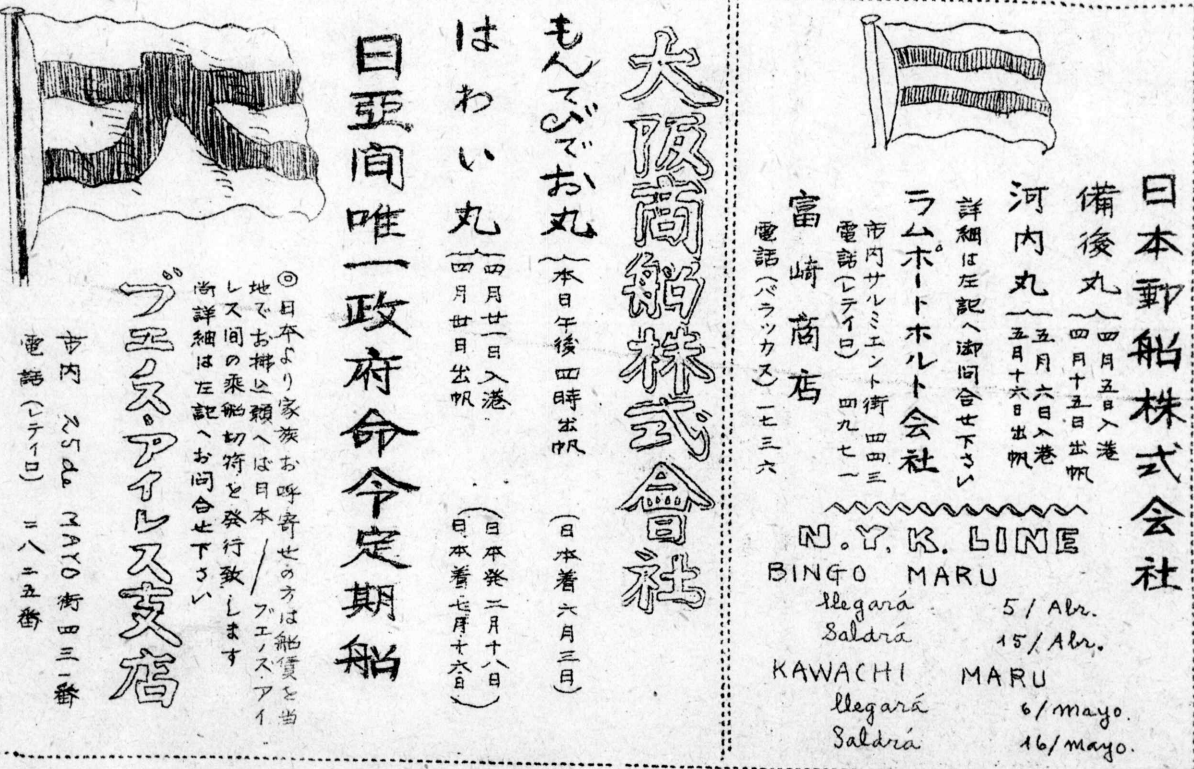 日本郵船株式会社
備後丸
四月五日入港
四月十五日出帆
河内丸
五月六日入港
五月十六日出帆
詳細は左記へ御問合せ下さい
ラムポートホルト会社
市内サルミエント街四四三
電話(レティロ)四九七一
富崎商店
電話(バラッカス)一七三六
N.Y.K. LINE
BINGO MARU
llegará 5/Abr.
Saldrá 15/Abr.
KAWACHI MARU
llegará 6/mayo.
Saldrá 16/mayo.
大阪商船株式會社
もんてびでお丸(本日午後四時出帆
(日本着六月三日)
はわい丸
四月廿一日入港
四月廿日出帆
(日本発二月十八日)
(日本着七月十六日)
日亞间唯一政府命令定期船
◎日本より家族お呼寄せの方は船賃を当
地でお拂込願へば日本/ブエノス・アイ
レス间の乗船切符を発行致します
尚詳細は左記へお问合せ下さい
ブエノス・アイレス支店
市内 25 de MAYO街四三一番
電話(レティロ)二八二五番